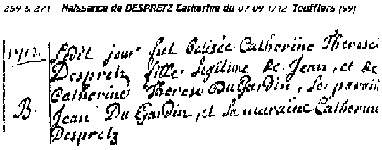 Naissance de DESPRETZ Catherine du 07 09 1712 Toufflers (59)
1712. Ledit jour fut batisée Catherine Therese
Despretz fille legitime de Jean, et de
Catherine Therese Du Gardin, Le parain
B. Jean Du Gardin, et la maraine Catherine
Despretz